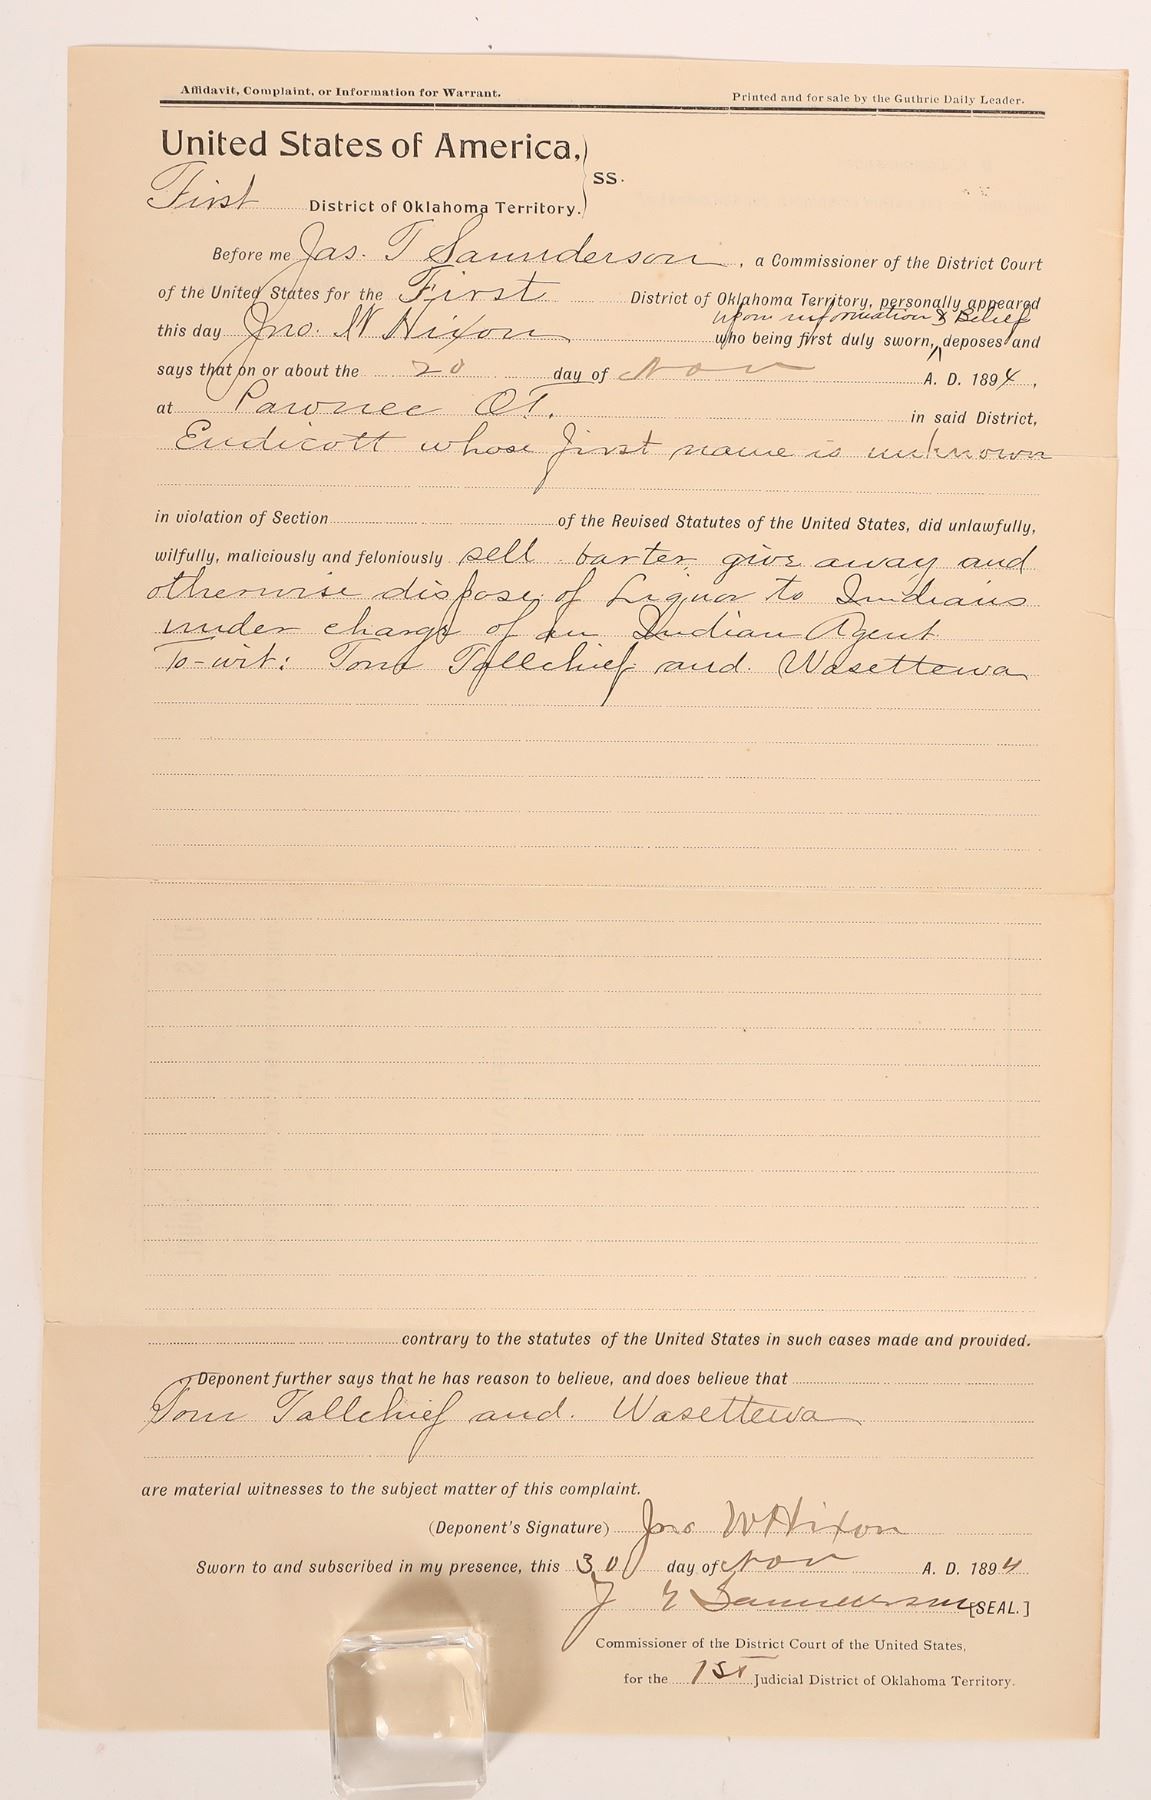 Affidavit, Complaint, or Information for Warrant.
Printed and for sale by the Guthrie Daily Leader.
United States of America,
ss.
First District of Oklahoma Territory.
Before me Jas. T Saunderson, a Commissioner of the District Court
of the United States for the First District of Oklahoma Territory, personally appeared
upon information & Belief
this day Jno. W Hixon who being first duly sworn, deposes and
says that on or about the 20 day of Nov A. D. 1894,
at Pawnee OT. in said District,
Endicott whose first name is unknown
in violation of Section of the Revised Statutes of the United States, did unlawfully,
wilfully, maliciously and feloniously sell barter, give away and
otherwise dispose of Liquor to Indians
under charge of an Indian Agent
To-wit: Tom Tallchief and. Wasettewa
contrary to the statutes of the United States in such cases made and provided.
Deponent further says that he has reason to believe, and does believe that
Tom Tallchief and. Wasettewa
are material witnesses to the subject matter of this complaint.
(Deponent's Signature) Jno W Hixon
Sworn to and subscribed in my presence, this 30 day of Nov A. D. 1894
J T Saunderson [SEAL.]
Commissioner of the District Court of the United States,
for the 1st Judicial District of Oklahoma Territory.